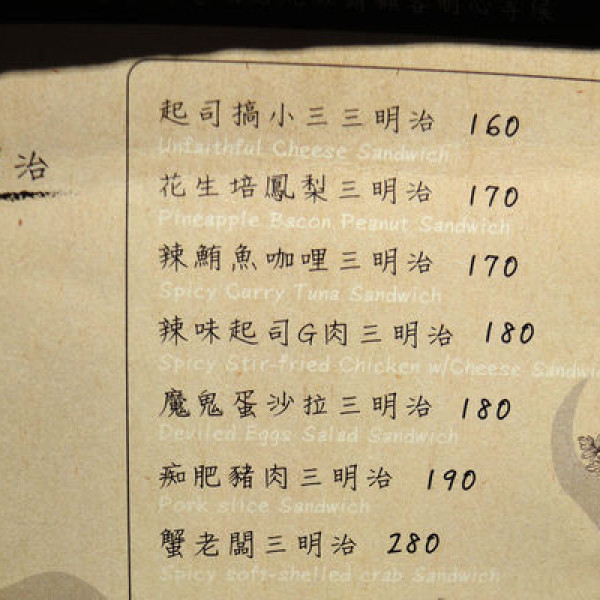 治
起司搞小三三明治 160
Unfaithful Cheese Sandwich
花生培鳳梨三明治 170
Pineapple Bacon Peanut Sandwich
辣鮪魚咖哩三明治 170
Spicy Curry Tuna Sandwich
辣味起司G肉三明治 180
Spicy Stir-fried Chicken w/Cheese Sandwic
魔鬼蛋沙拉三明治 180
Deviled Eggs Salad Sandwich
痴肥豬肉三明治 190
Pork slice Sandwich
蟹老闆三明治 280
Spicy soft-shelled crab Sandwich